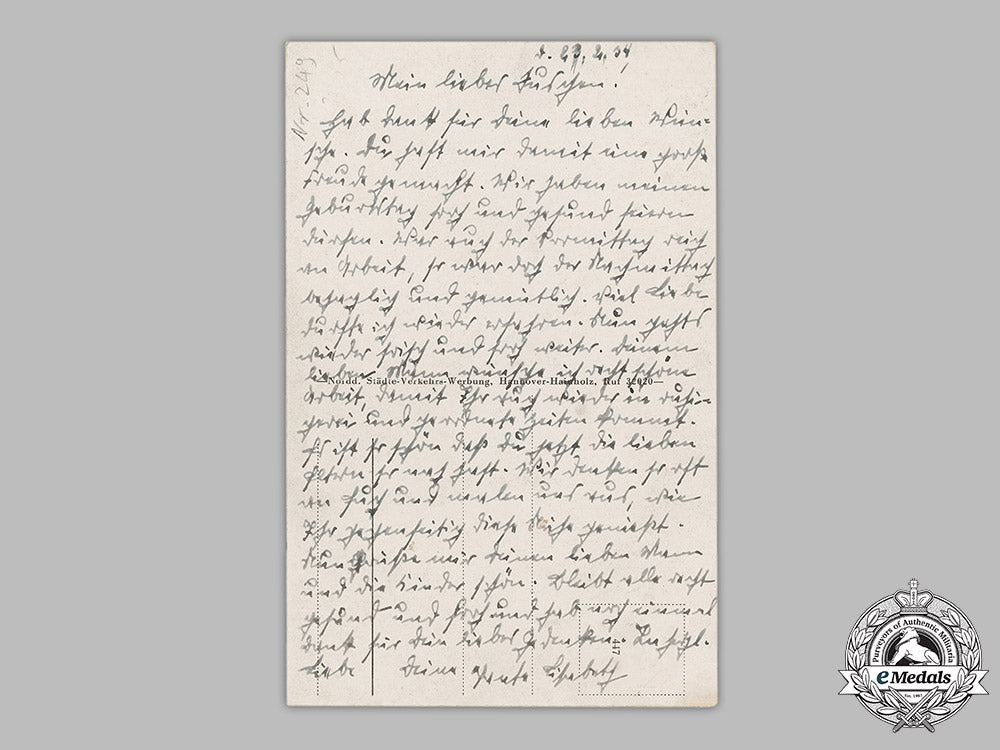 d. 23. 2. 34
Nr. 249
Mein liebes Suschen.
Hab Dank für Deine lieben Wün-
sche. Du hast mir damit eine große
Freude gemacht. Wir haben meinen
Geburtstag froh und gesund feiern
dürfen. War auch der Vormittag reich
an Arbeit, so war doch der Nachmittag
behaglich und gemütlich. Viel Liebe
durfte ich wieder erfahren. Nun gehts
wieder frisch und froh weiter. Deinem
lieben Mann wünsche ich recht schöne
—Nordd. Städte-Verkehrs-Werbung, Hannover-Hainholz, Ruf 32020—
Arbeit, damit Ihr auch wieder in ruhi-
gere und geordnete Zeiten kommt.
Es ist so schön daß Du jetzt die lieben
Eltern so nah hast. Wir denken so oft
an Euch und malen uns aus, wie
Ihr gegenseitig diese Nähe genießt.
Nun grüße mir Deinen lieben Mann
und die Kinder schön. Bleibt alle recht
gesund und froh und hab noch einmal
Dank für Dein liebes Gedenken. In herzl.
Liebe Deine Tante Elisabeth
47
Purveyors of Authentic Militaria
eMedals